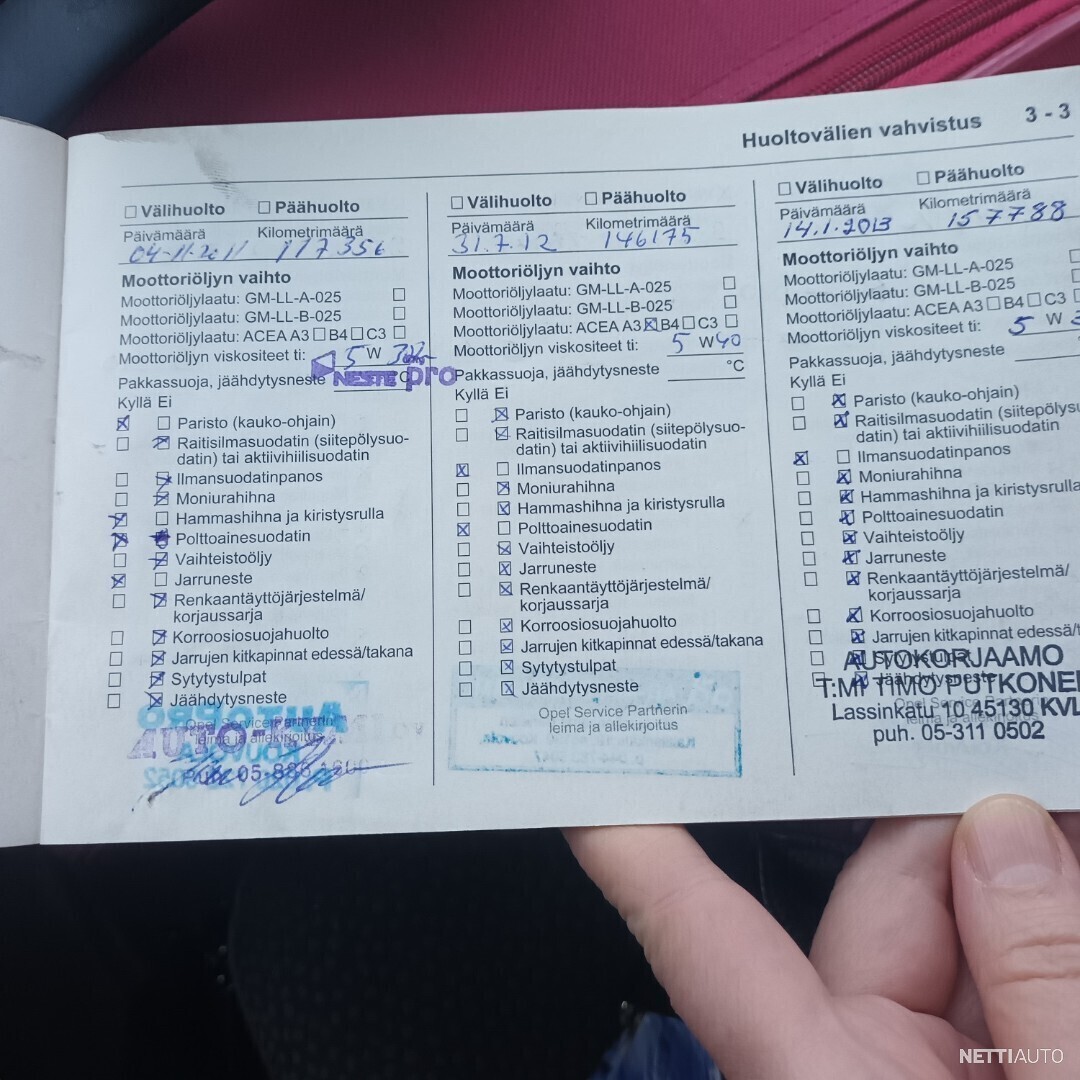 Huoltovälien vahvistus 3 - 3
☐ Välihuolto ☐ Päähuolto
Päivämäärä Kilometrimäärä
04-11-2011 117356
Moottoriöljyn vaihto
Moottoriöljylaatu: GM-LL-A-025 ☐
Moottoriöljylaatu: GM-LL-B-025 ☐
Moottoriöljylaatu: ACEA A3 ☐ B4 ☐ C3 ☐
Moottoriöljyn viskositeet ti: 5 W
Pakkassuoja, jäähdytysneste
NESTE pro
Kyllä Ei
☒ ☐ Paristo (kauko-ohjain)
☐ ☒ Raitisilmasuodatin (siitepölysuo-
datin) tai aktiivihiilisuodatin
☐ ☒ Ilmansuodatinpanos
☐ ☒ Moniurahihna
☒ ☐ Hammashihna ja kiristysrulla
☒ ☒ Polttoainesuodatin
☐ ☒ Vaihteistoöljy
☒ ☐ Jarruneste
☐ ☒ Renkaantäyttöjärjestelmä/
korjaussarja
☐ ☒ Korroosiosuojahuolto
☐ ☒ Jarrujen kitkapinnat edessä/takana
☐ ☒ Sytytystulpat
☐ ☒ Jäähdytysneste
Opel Service Partnerin
leima ja allekirjoitus
☐ Välihuolto ☐ Päähuolto
Päivämäärä Kilometrimäärä
31.7.12 146175
Moottoriöljyn vaihto
Moottoriöljylaatu: GM-LL-A-025 ☐
Moottoriöljylaatu: GM-LL-B-025 ☐
Moottoriöljylaatu: ACEA A3 ☒ B4 ☐ C3 ☐
Moottoriöljyn viskositeet ti: 5 W 40
Pakkassuoja, jäähdytysneste °C
Kyllä Ei
☐ ☒ Paristo (kauko-ohjain)
☐ ☒ Raitisilmasuodatin (siitepölysuo-
datin) tai aktiivihiilisuodatin
☒ ☐ Ilmansuodatinpanos
☐ ☒ Moniurahihna
☐ ☒ Hammashihna ja kiristysrulla
☒ ☐ Polttoainesuodatin
☐ ☒ Vaihteistoöljy
☐ ☒ Jarruneste
☐ ☒ Renkaantäyttöjärjestelmä/
korjaussarja
☐ ☒ Korroosiosuojahuolto
☐ ☒ Jarrujen kitkapinnat edessä/takana
☐ ☒ Sytytystulpat
☐ ☒ Jäähdytysneste
Opel Service Partnerin
leima ja allekirjoitus
☐ Välihuolto ☐ Päähuolto
Päivämäärä Kilometrimäärä
14.1.2013 157788
Moottoriöljyn vaihto
Moottoriöljylaatu: GM-LL-A-025
Moottoriöljylaatu: GM-LL-B-025
Moottoriöljylaatu: ACEA A3 ☐ B4 ☐ C3
Moottoriöljyn viskositeet ti: 5 W
Pakkassuoja, jäähdytysneste
Kyllä Ei
☐ ☒ Paristo (kauko-ohjain)
☐ ☒ Raitisilmasuodatin (siitepölysu
datin) tai aktiivihiilisuodatin
☒ ☐ Ilmansuodatinpanos
☐ ☒ Moniurahihna
☐ ☒ Hammashihna ja kiristysrulla
☐ ☒ Polttoainesuodatin
☐ ☒ Vaihteistoöljy
☐ ☒ Jarruneste
☐ ☒ Renkaantäyttöjärjestelmä/
korjaussarja
☐ ☒ Korroosiosuojahuolto
☐ ☒ Jarrujen kitkapinnat edessä/
☐ ☒ Sytytystulpat
☐ ☒ Jäähdytysneste
AUTOKORJAAMO
T:MI TIMO PUTKONE
Lassinkatu 10 45130 KVL
puh. 05-311 0502
NETTIAUTO